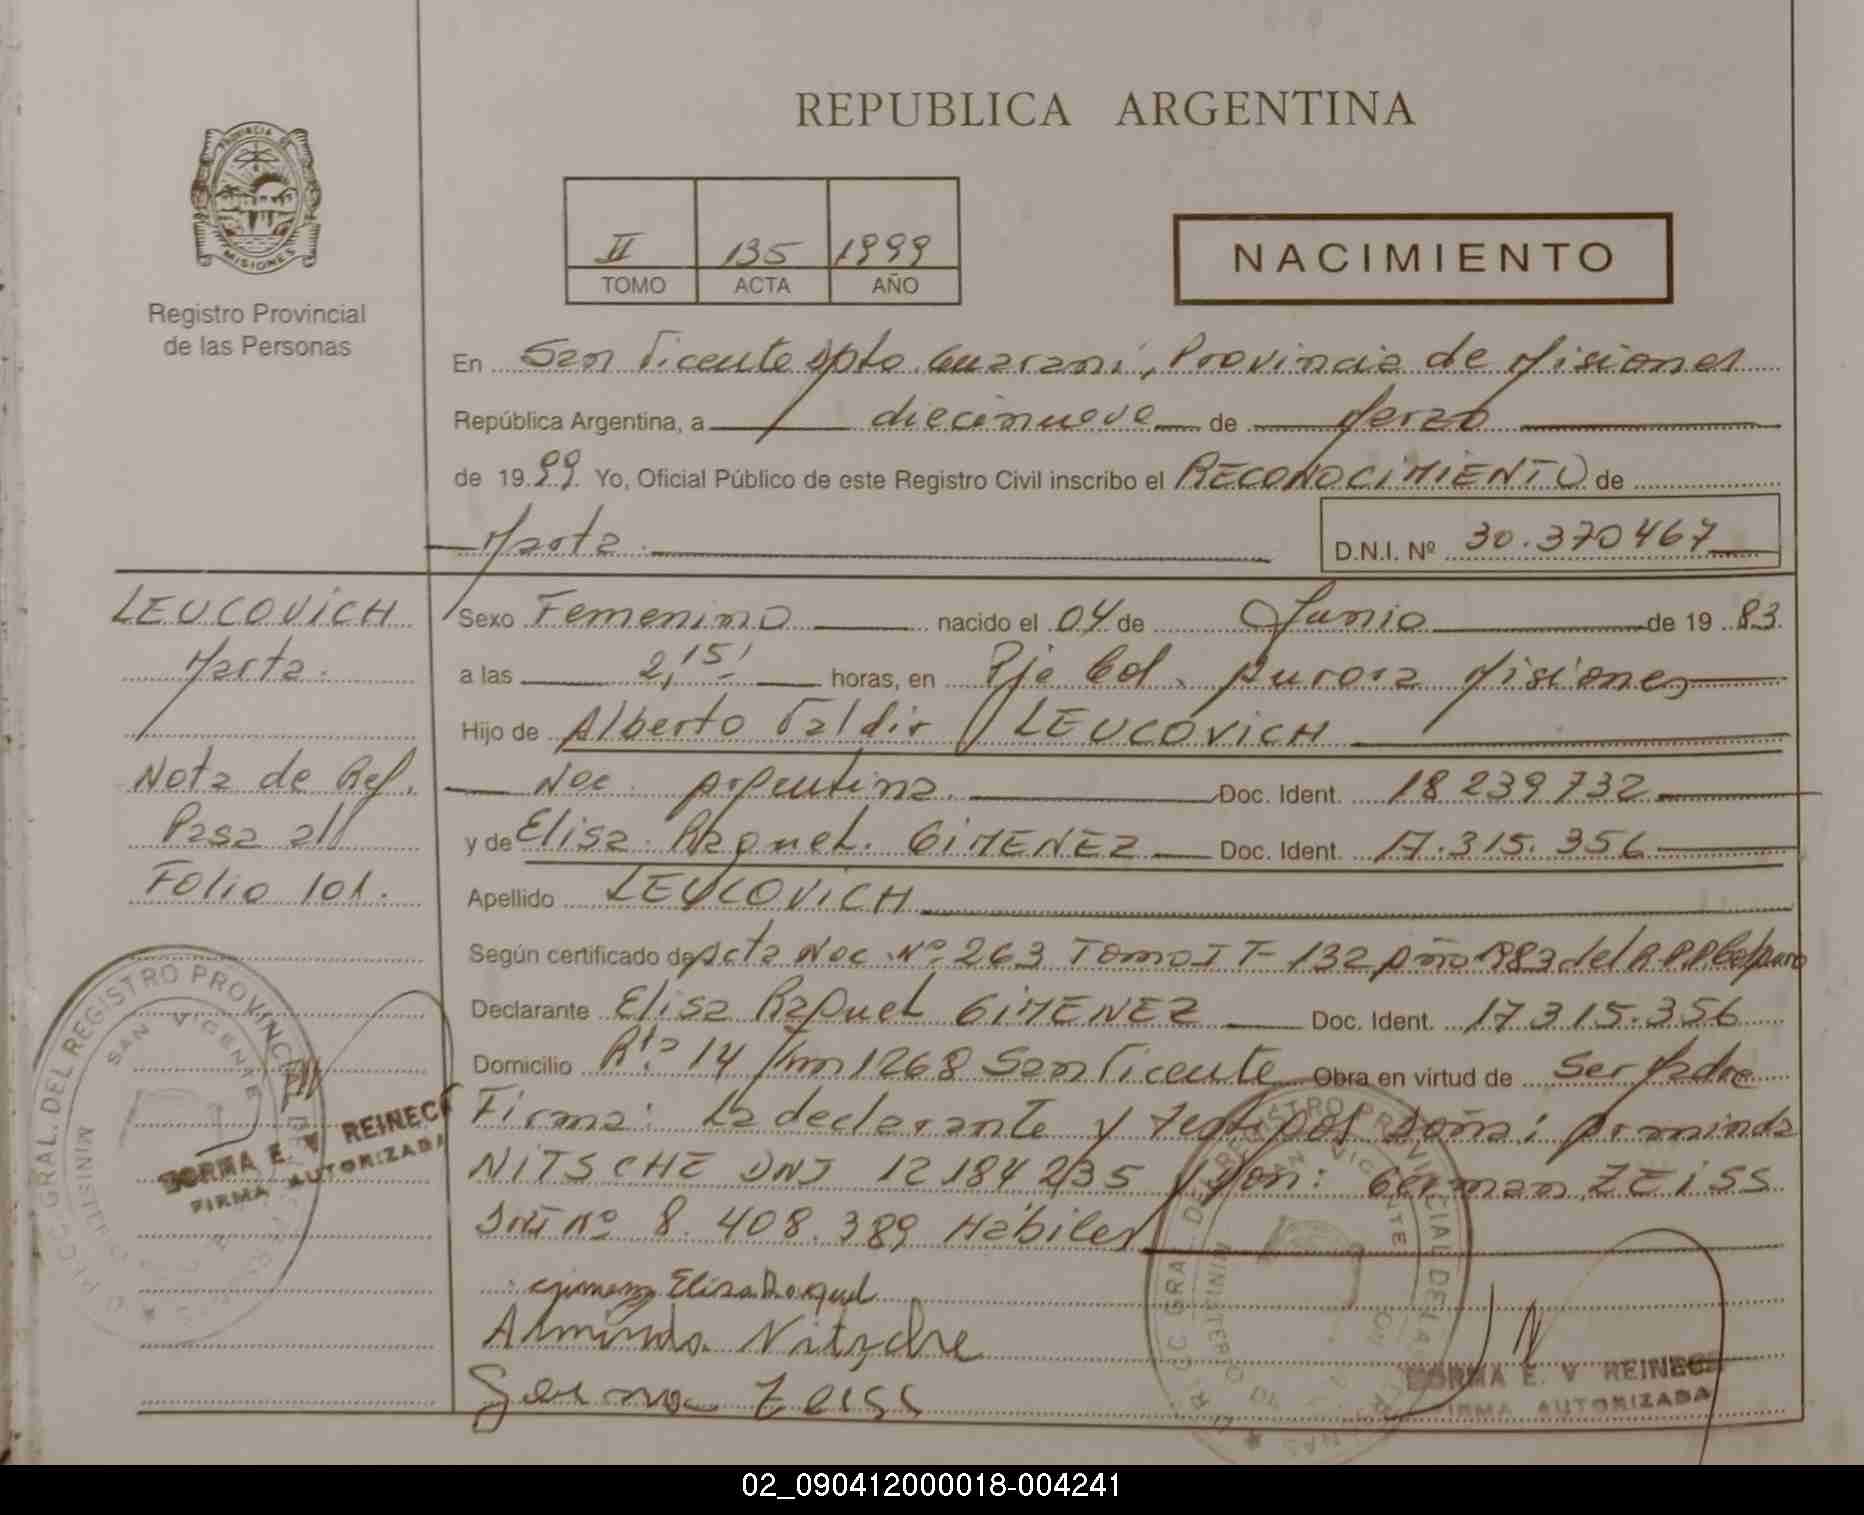 REPUBLICA ARGENTINA
PROVINCIA DE
MISIONES
Registro Provincial
de las Personas
II 135 1999
TOMO ACTA AÑO
NACIMIENTO
En San Vicente Dpto. Guaraní, Provincia de Misiones
República Argentina, a diecinueve de Marzo
de 1999. Yo, Oficial Público de este Registro Civil inscribo el RECONOCIMIENTO de
Marta.
D.N.I. Nº 30.370467
LEUCOVICH
Marta.
Nota de Ref.
Pasa al
Folio 101.
Sexo Femenino nacido el 04 de Junio de 1983.
a las 2,15' horas, en Pje Col. Aurora Misiones
Hijo de Alberto Valdir LEUCOVICH
Nac. Argentina. Doc. Ident. 18239732
y de Elisa Raquel. GIMENEZ Doc. Ident. 17.315.356
Apellido LEUCOVICH
Según certificado de Acta Nac. Nº 263 Tomo I F- 132 Año 1983 del R.P.P. Col Auro
Declarante Elisa Raquel GIMENEZ Doc. Ident. 17315.356
Domicilio Rta 14 Km 1268 San Vicente Obra en virtud de Ser Madre
Firma: La declarante y testigos Doña: Arminda
NITSCHE DNI 12184235 y Don: German ZEISS
DNI Nº 8.408.389 Hábiles
Gimenez Elisa Raquel
Arminda Nitzche
German Zeiss
GRAL. DEL REGISTRO PROVINCIAL
SAN VICENTE
MINISTERIO
E. V REINECK
FIRMA AUTORIZADA
REGISTRO PROVINCIAL DE LAS
SAN VICENTE
MINISTERIO
E. V REINECK
FIRMA AUTORIZADA
02_090412000018-004241